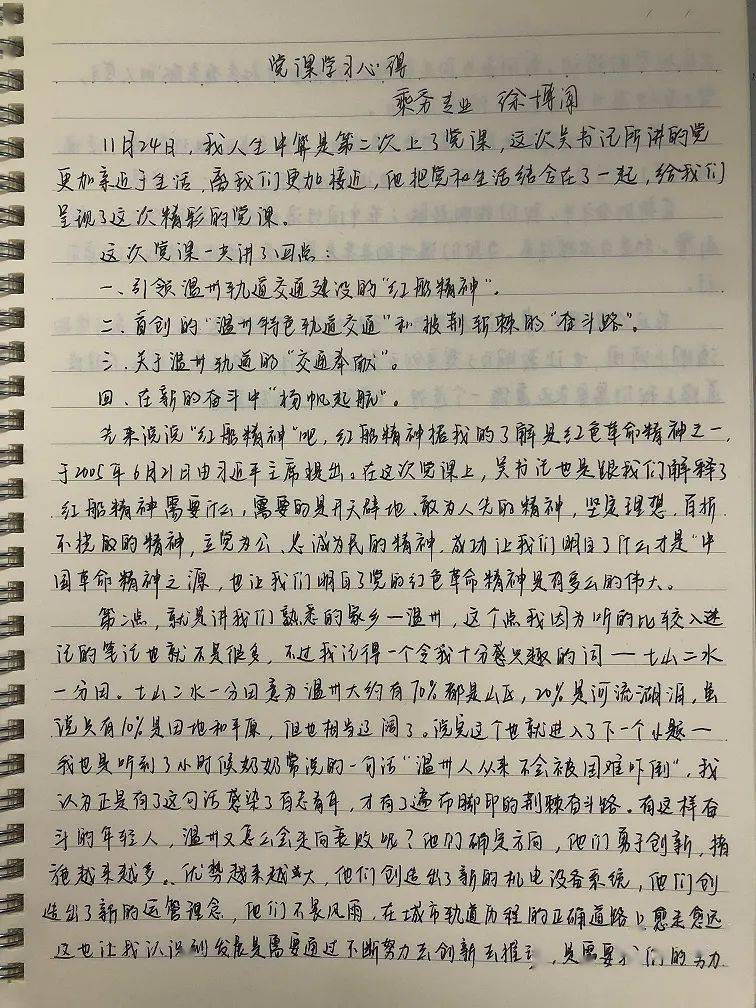 党课学习心得
乘务专业 徐博闻
11月24日，我人生中算是第二次上了党课，这次吴书记所讲的党
更加亲近于生活，离我们更加接近，他把党和生活结合在了一起，给我们
呈现了这次精彩的党课。
这次党课一共讲了四点：
一、引领温州轨道交通建设的“红船精神”。
二、首创的“温州特色轨道交通”和披荆斩棘的“奋斗路”。
三、关于温州轨道的“交通奉献”。
四、在新的奋斗中“扬帆起航”。
先来说说“红船精神”吧，红船精神据我的了解是红色革命精神之一，
于2005年6月21日由习近平主席提出。在这次党课上，吴书记也是跟我们解释了
红船精神需要什么，需要的是开天辟地、敢为人先的精神，坚定理想、百折
不挠的精神，立党为公、忠诚为民的精神，成功让我们明白了什么才是“中
国革命精神之源，也让我们明白了党的红色革命精神是有多么的伟大。
第二点，就是讲我们熟悉的家乡—温州，这个点我因为听的比较入迷
记的笔记也就不是很多，不过我记得一个令我十分感兴趣的词——七山二水
一分田。七山二水一分田意为温州大约有70%都是山丘，20%是河流湖泪，虽
说只有10%是田地和平原，但也相当辽阔了。说完这个也就进入了下一个小题—
我也是听到了小时候奶奶常说的一句话“温州人从来不会被困难吓倒”，我
认为正是有了这句话感染了有志青年，才有了遍布脚印的荆棘奋斗路。有这样奋
斗的年轻人，温州又怎么会走向衰败呢？他们确定方向，他们勇于创新，措
施越来越多。优势越来越大，他们创造出了新的机电设备系统，他们创
造出了新的运管理念，他们不畏风雨，在城市轨道历程的正确道路上愈走愈远
这也让我认识到发展是需要通过不断努力去创新去推，是需要我们的努力